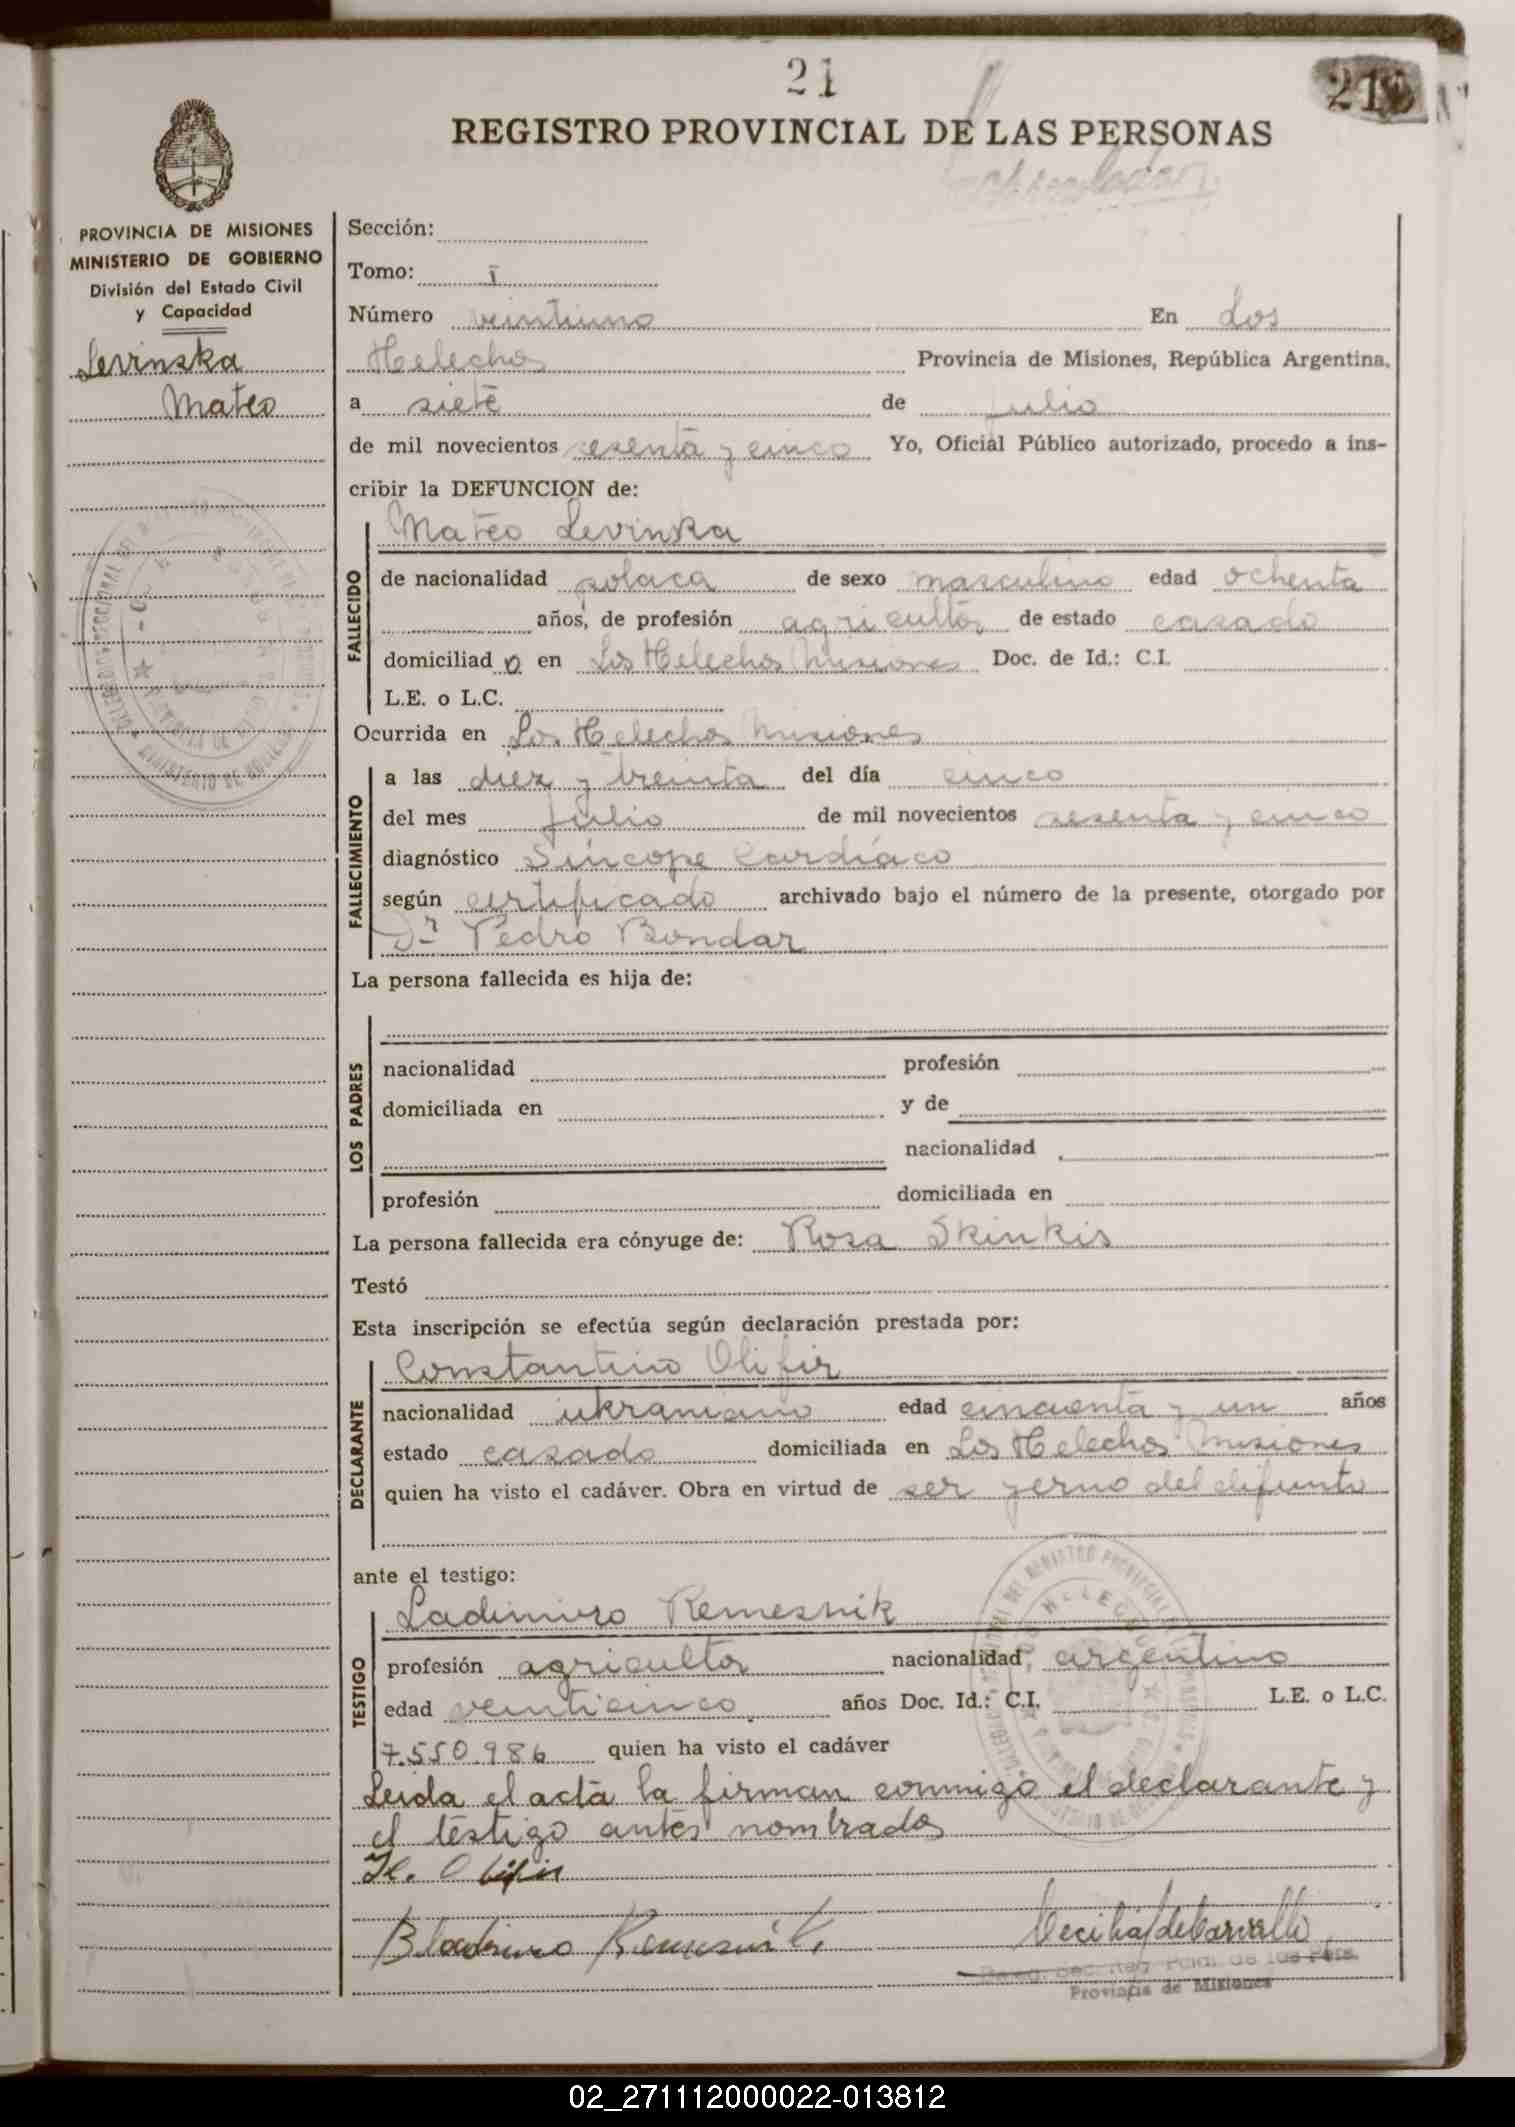 21
REGISTRO PROVINCIAL DE LAS PERSONAS
PROVINCIA DE MISIONES
MINISTERIO DE GOBIERNO
División del Estado Civil
y Capacidad
Levinska
Mateo
Sección:
Tomo: I
Número veintiuno En Los
Helechos Provincia de Misiones, República Argentina,
a siete de julio
de mil novecientos sesenta y cinco Yo, Oficial Público autorizado, procedo a ins-
cribir la DEFUNCION de:
Mateo Levinska
FALLECIDO
de nacionalidad polaca de sexo masculino edad ochenta
años, de profesión agricultor de estado casado
domiciliad o en Los Helechos Misiones Doc. de Id.: C.I.
L.E. o L.C.
Ocurrida en Los Helechos Misiones
FALLECIMIENTO
a las diez y treinta del día cinco
del mes julio de mil novecientos sesenta y cinco
diagnóstico Síncope Cardíaco
según certificado archivado bajo el número de la presente, otorgado por
Dr Pedro Bondar
La persona fallecida es hija de:
LOS PADRES
nacionalidad profesión
domiciliada en y de
nacionalidad
profesión domiciliada en
La persona fallecida era cónyuge de: Rosa Skinkis
Testó
Esta inscripción se efectúa según declaración prestada por:
Constantino Olifir
DECLARANTE
nacionalidad ukraniano edad cincuenta y un años
estado casado domiciliada en Los Helechos Misiones
quien ha visto el cadáver. Obra en virtud de ser yerno del difunto
ante el testigo:
Ladimiro Remesnik
TESTIGO
profesión agricultor nacionalidad argentino
edad veinticinco años Doc. Id.: C.I. L.E. o L.C.
7.550.986 quien ha visto el cadáver
Leida el acta la firman conmigo el declarante y
el testigo antes nombrados
Provincia de Misiones
02_271112000022-013812